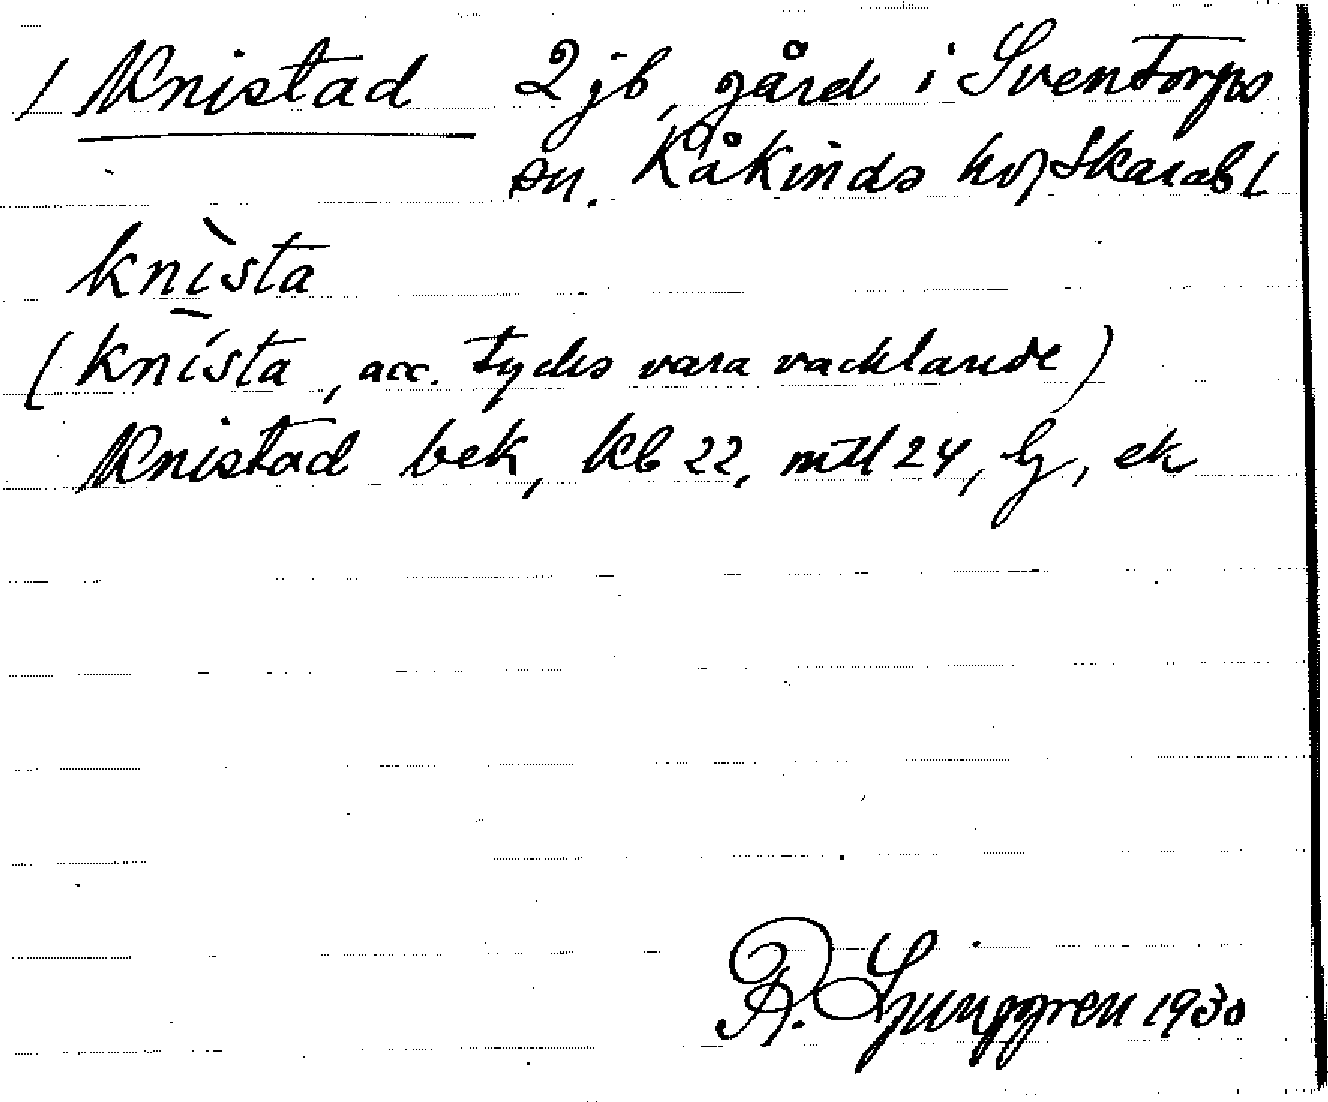 / Knistad 2 jb, gård i Sventorps
sn. Kåkinds hd, Skarab l
knìsta
(knísta, acc. tycks vara vacklande)
Knistad bek, kb 22, mtl 24, lj, ek
R. Ljunggren 1930